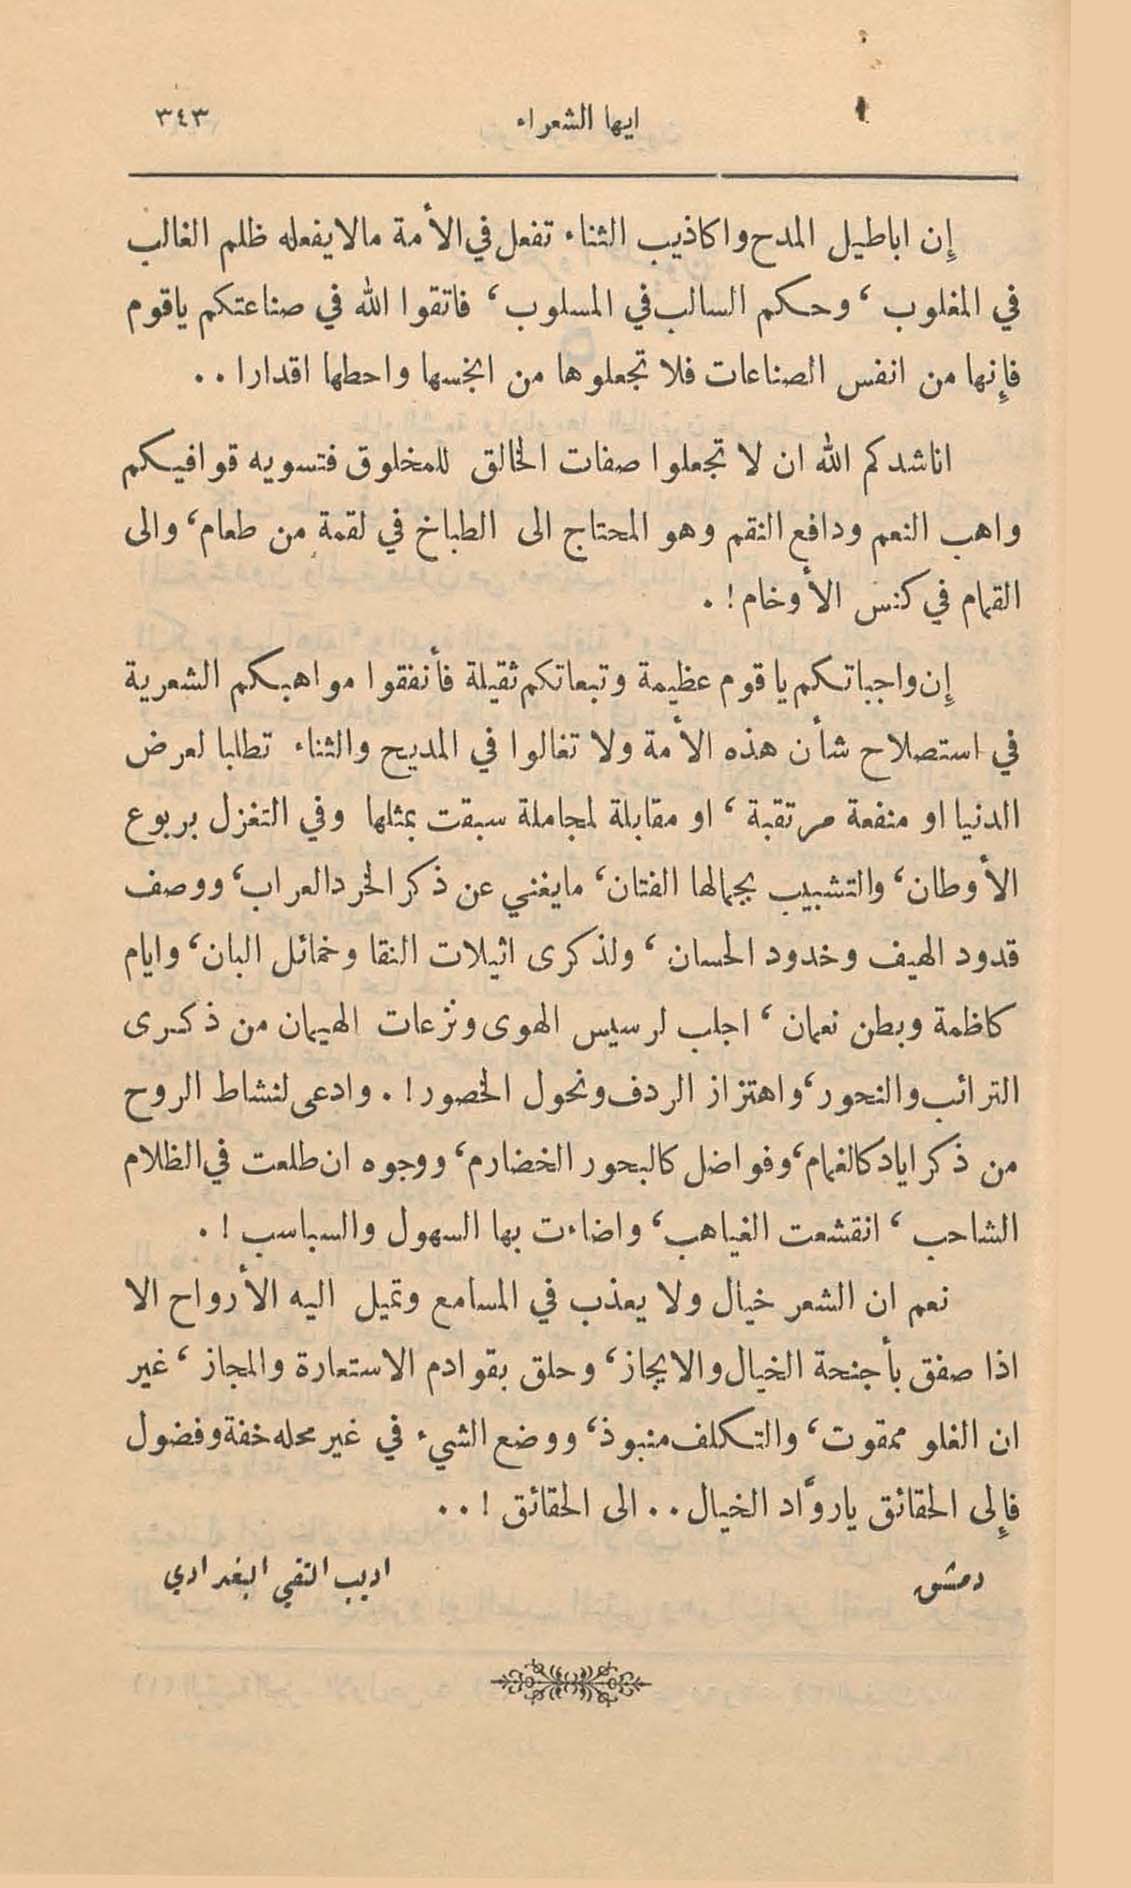 ايها الشعراء
٣٤٣
إِن اباطيل المدح واكاذيب الثناء تفعل في الأمة مالا يفعله ظلم الغالب
في المغلوب ، وحكم السالب في المسلوب ، فاتقوا الله في صناعتكم ياقوم
فإِنها من انفس الصناعات فلا تجعلوها من ابخسها واحطها اقدارا ..
اناشدكم الله ان لا تجعلوا صفات الخالق للمخلوق فتسويه قوافيكم
واهب النعم ودافع النقم وهو المحتاج الى الطباخ في لقمة من طعام ، والى
القمام في كنس الأوخام ! .
إِن واجباتكم ياقوم عظيمة وتبعاتكم ثقيلة فأنفقوا مواهبكم الشعرية
في استصلاح شأن هذه الأمة ولا تغالوا في المديح والثناء تطلبا لعرض
الدنيا او منفعة مرتقبة ، او مقابلة لمجاملة سبقت بمثلها وفي التغزل بربوع
الأوطان ، والتشبيب بجمالها الفتان ، مايغني عن ذكر الخرد العراب ، ووصف
قدود الهيف وخدود الحسان ، ولذكرى اثيلات النقا وخمائل البان ، وايام
كاظمة وبطن نعمان ، اجلب لرسيس الهوى ونزعات الهيمان من ذكرى
الترائب والنحور ، واهتزاز الردف ونحول الخصور ! . وادعى لنشاط الروح
من ذكر اياد كالغمام ، وفواضل كالبحور الخضارم ، ووجوه ان طلعت في الظلام
الشاحب ، انقشعت الغياهب ، واضاءت بها السهول والسباسب ! .
نعم ان الشعر خيال ولا يعذب في المسامع وتميل اليه الأرواح الا
اذا صفق بأجنحة الخيال والايجاز ، وحلق بقوادم الاستعارة والمجاز ، غير
ان الغلو ممقوت ، والتكلف منبوذ ، ووضع الشيء في غير محله خفة وفضول
فإِلى الحقائق ياروَّاد الخيال .. الى الحقائق ! ..
دمشق
اديب التقي البغدادي